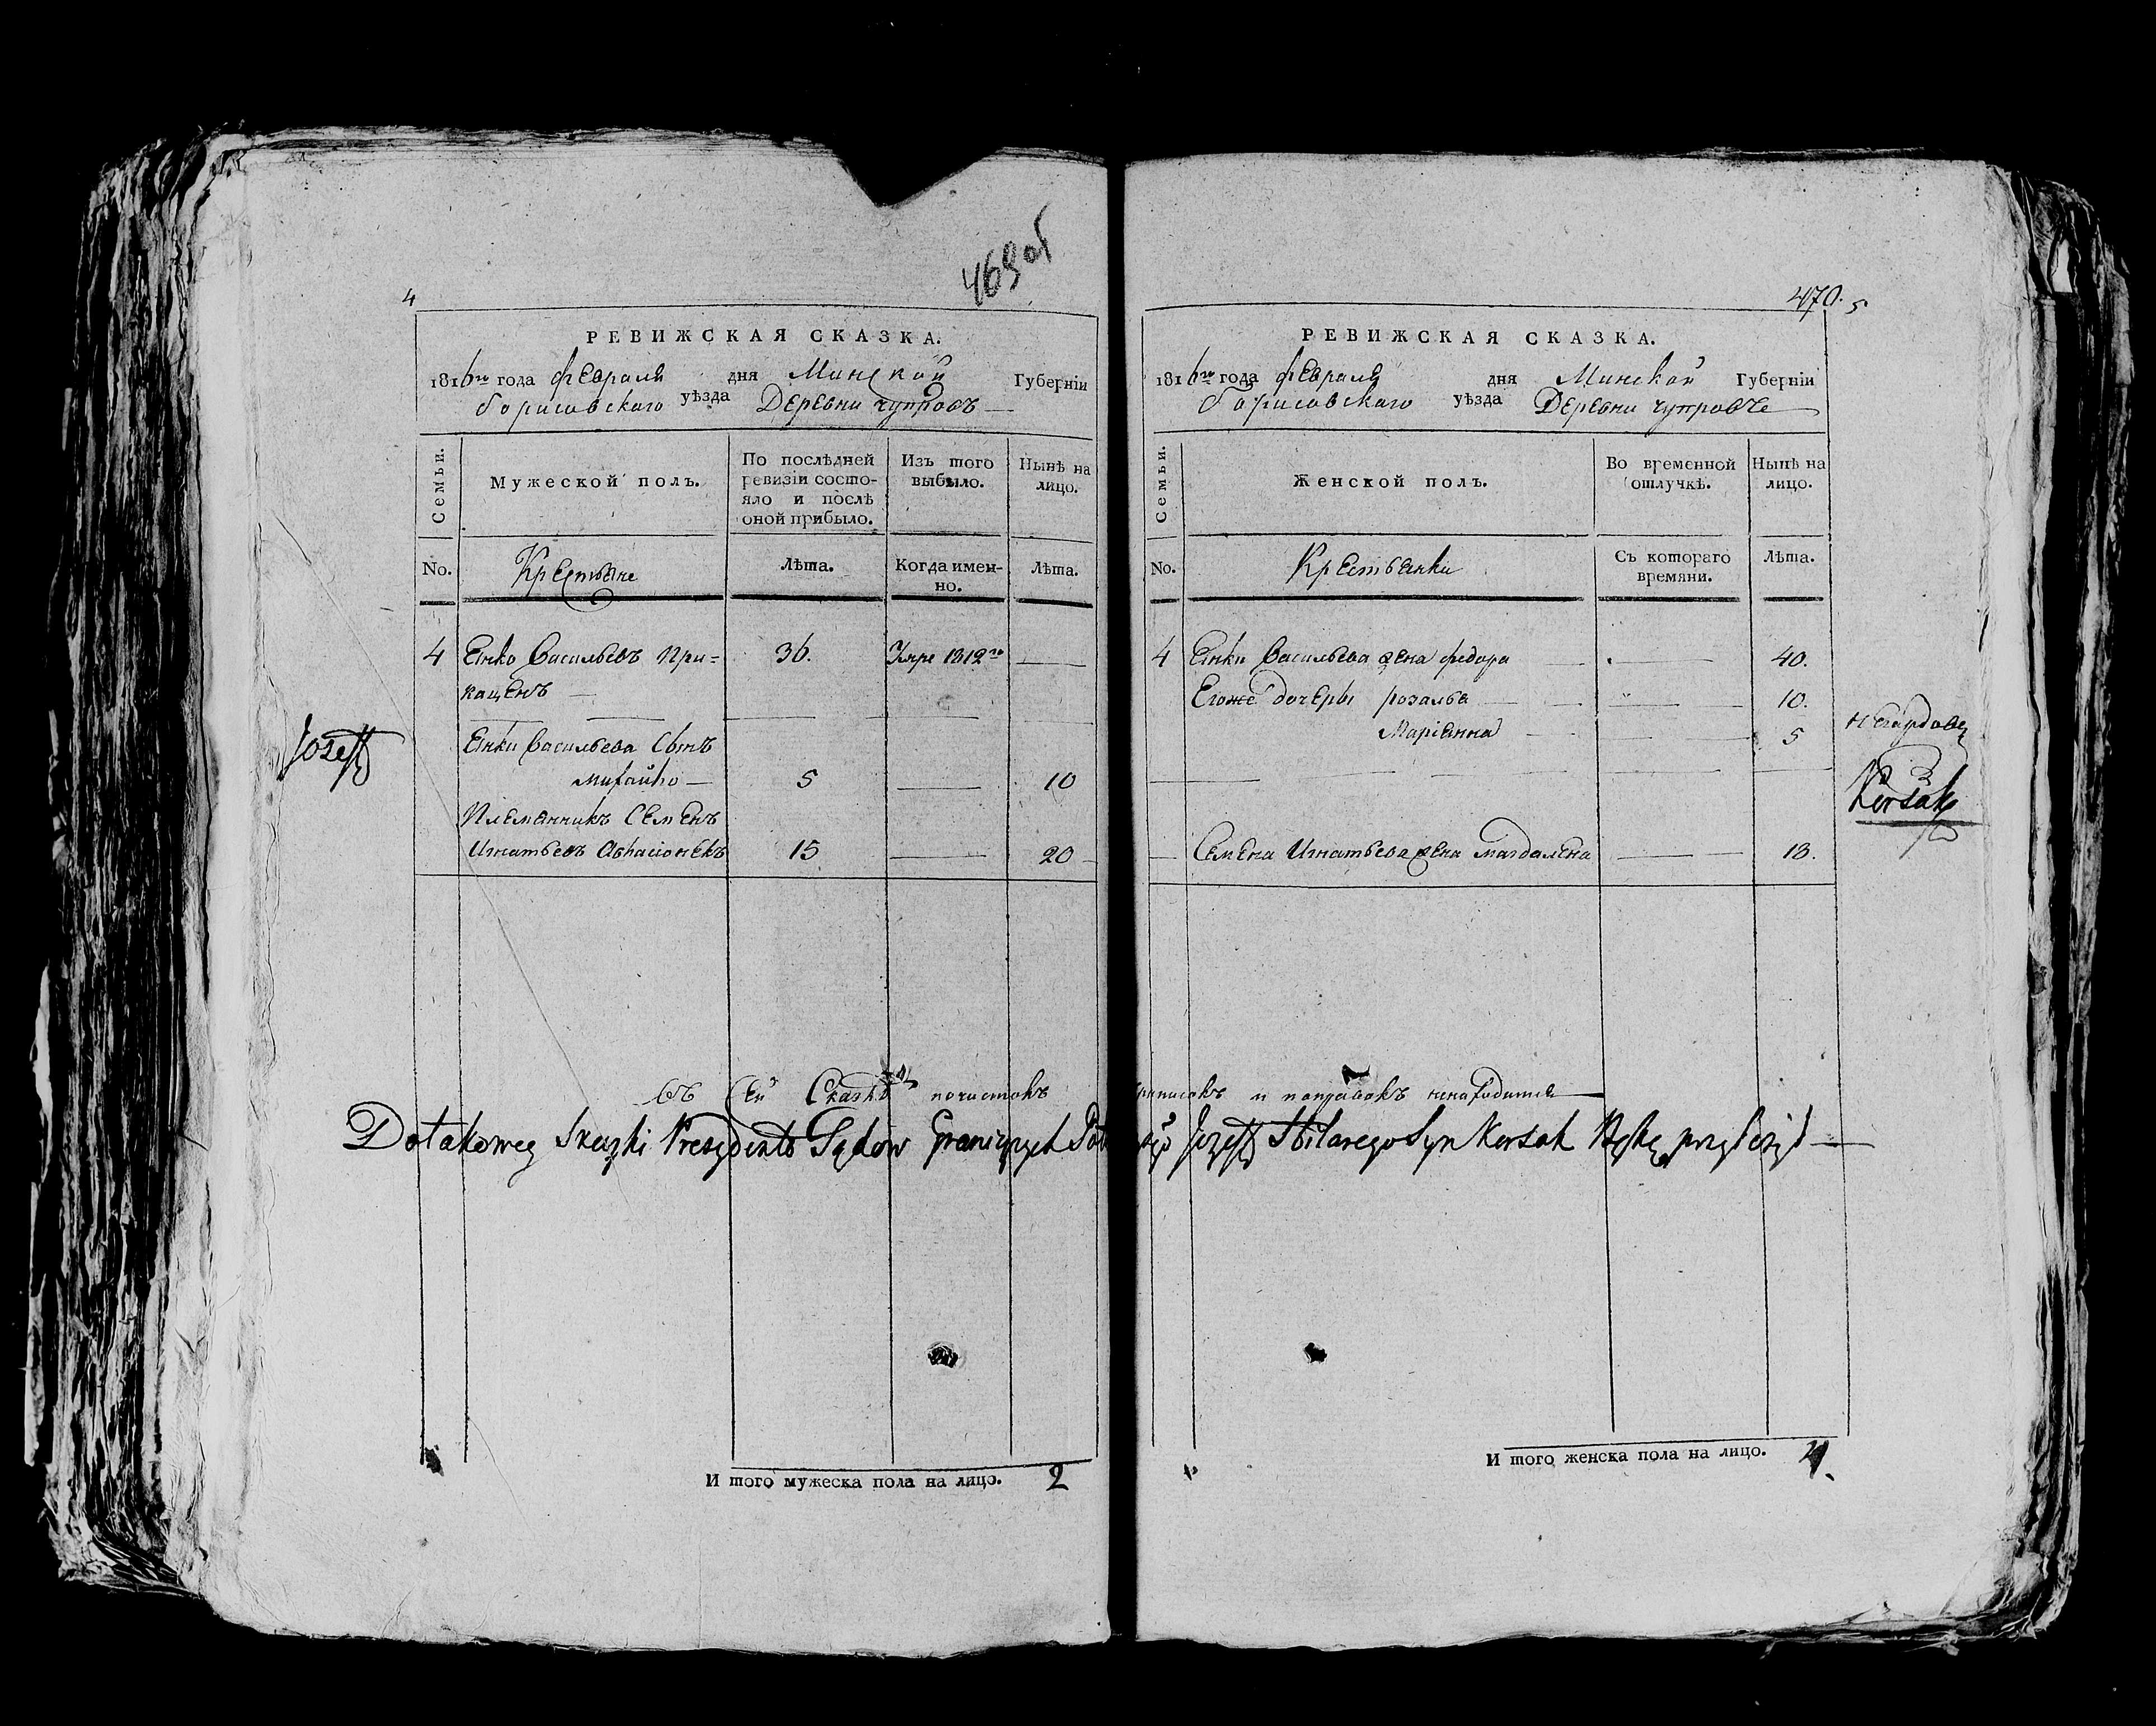 469 об
4
РЕВИЖСКАЯ СКАЗКА.
1816го года февраля дня Минской Губерніи
борисовскаго уѣзда Деревни чупровъ
Семьи. Мужеской полъ. По послѣдней ревизіи состояло и послѣ оной прибыло. Изъ того выбыло. Нынѣ на лицо.
No. Крестьяне Лѣта. Когда именно. Лѣта.
4 Янко Васильевъ При= 36. Умре 1812го
кащенъ
Янки Васильева Сынъ
Михайло 5 10
Племянникъ Семенъ
Игнатьевъ 15 20
Jozeff
470. 5
РЕВИЖСКАЯ СКАЗКА.
1816го года февраля дня Минской Губерніи
борисовскаго уѣзда Деревни
Семьи. Женской полъ. Во временной отлучкѣ. Нынѣ на лицо.
No. Крестьянки Съ котораго времяни. Лѣта.
4 Янки Васильева жена федора 40.
Егоже дочеры розалья 10.
Маріянна 5
Семена Игнатьева жена магдалена 18.
Korsak
въ сей Сказкѣ почистокъ приписокъ и поправокъ ненаходится
Do takowey Skazki Prezydent Sądow Granicznych Jozeff Hilarego Syn Korsak Rękę przyłożył
И того мужеска пола на лицо. 2
И того женска пола на лицо. 4.